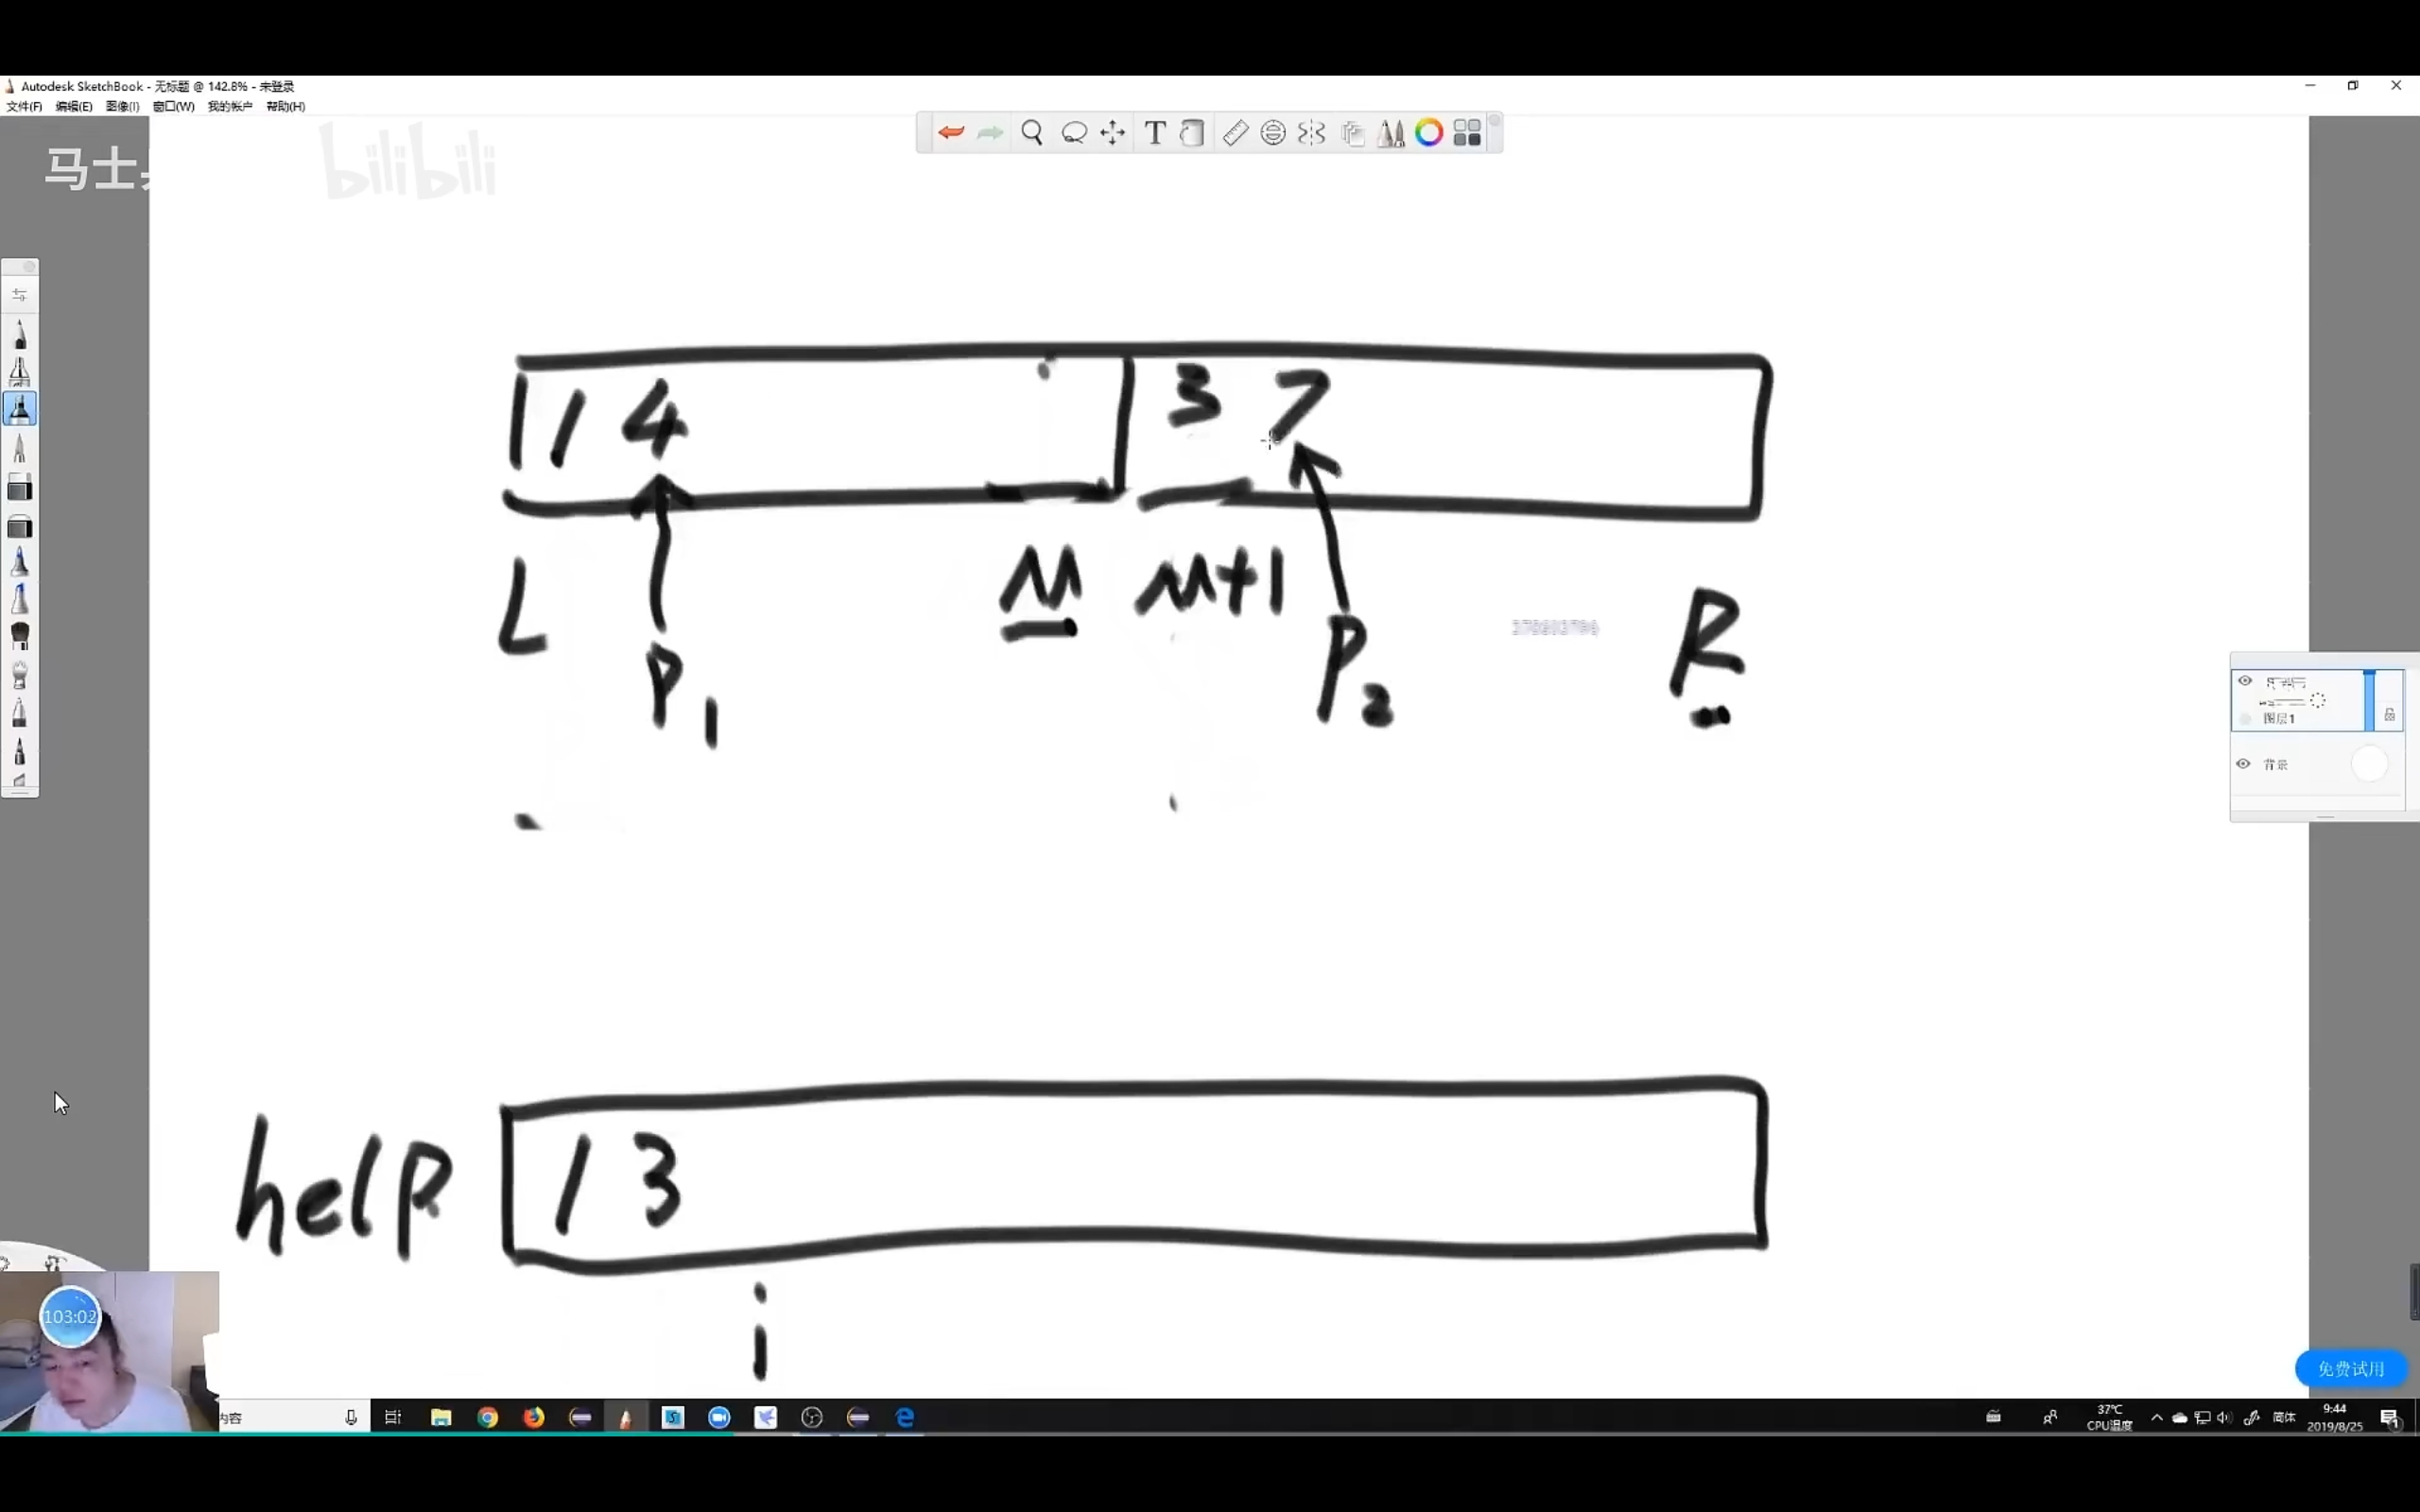 Autodesk SketchBook - 无标题 @ 142.8% - 未登录
文件(F) 编辑(E) 图像(I) 窗口(W) 我的帐户 帮助(H)
马士
bilibili
T
1 4 3 7
L M M+1 R
P1 P2
图层1
背景
help 1 3
i
103:02
免费试用
内容
37℃
CPU温度
简体
9:44
2019/8/25
1